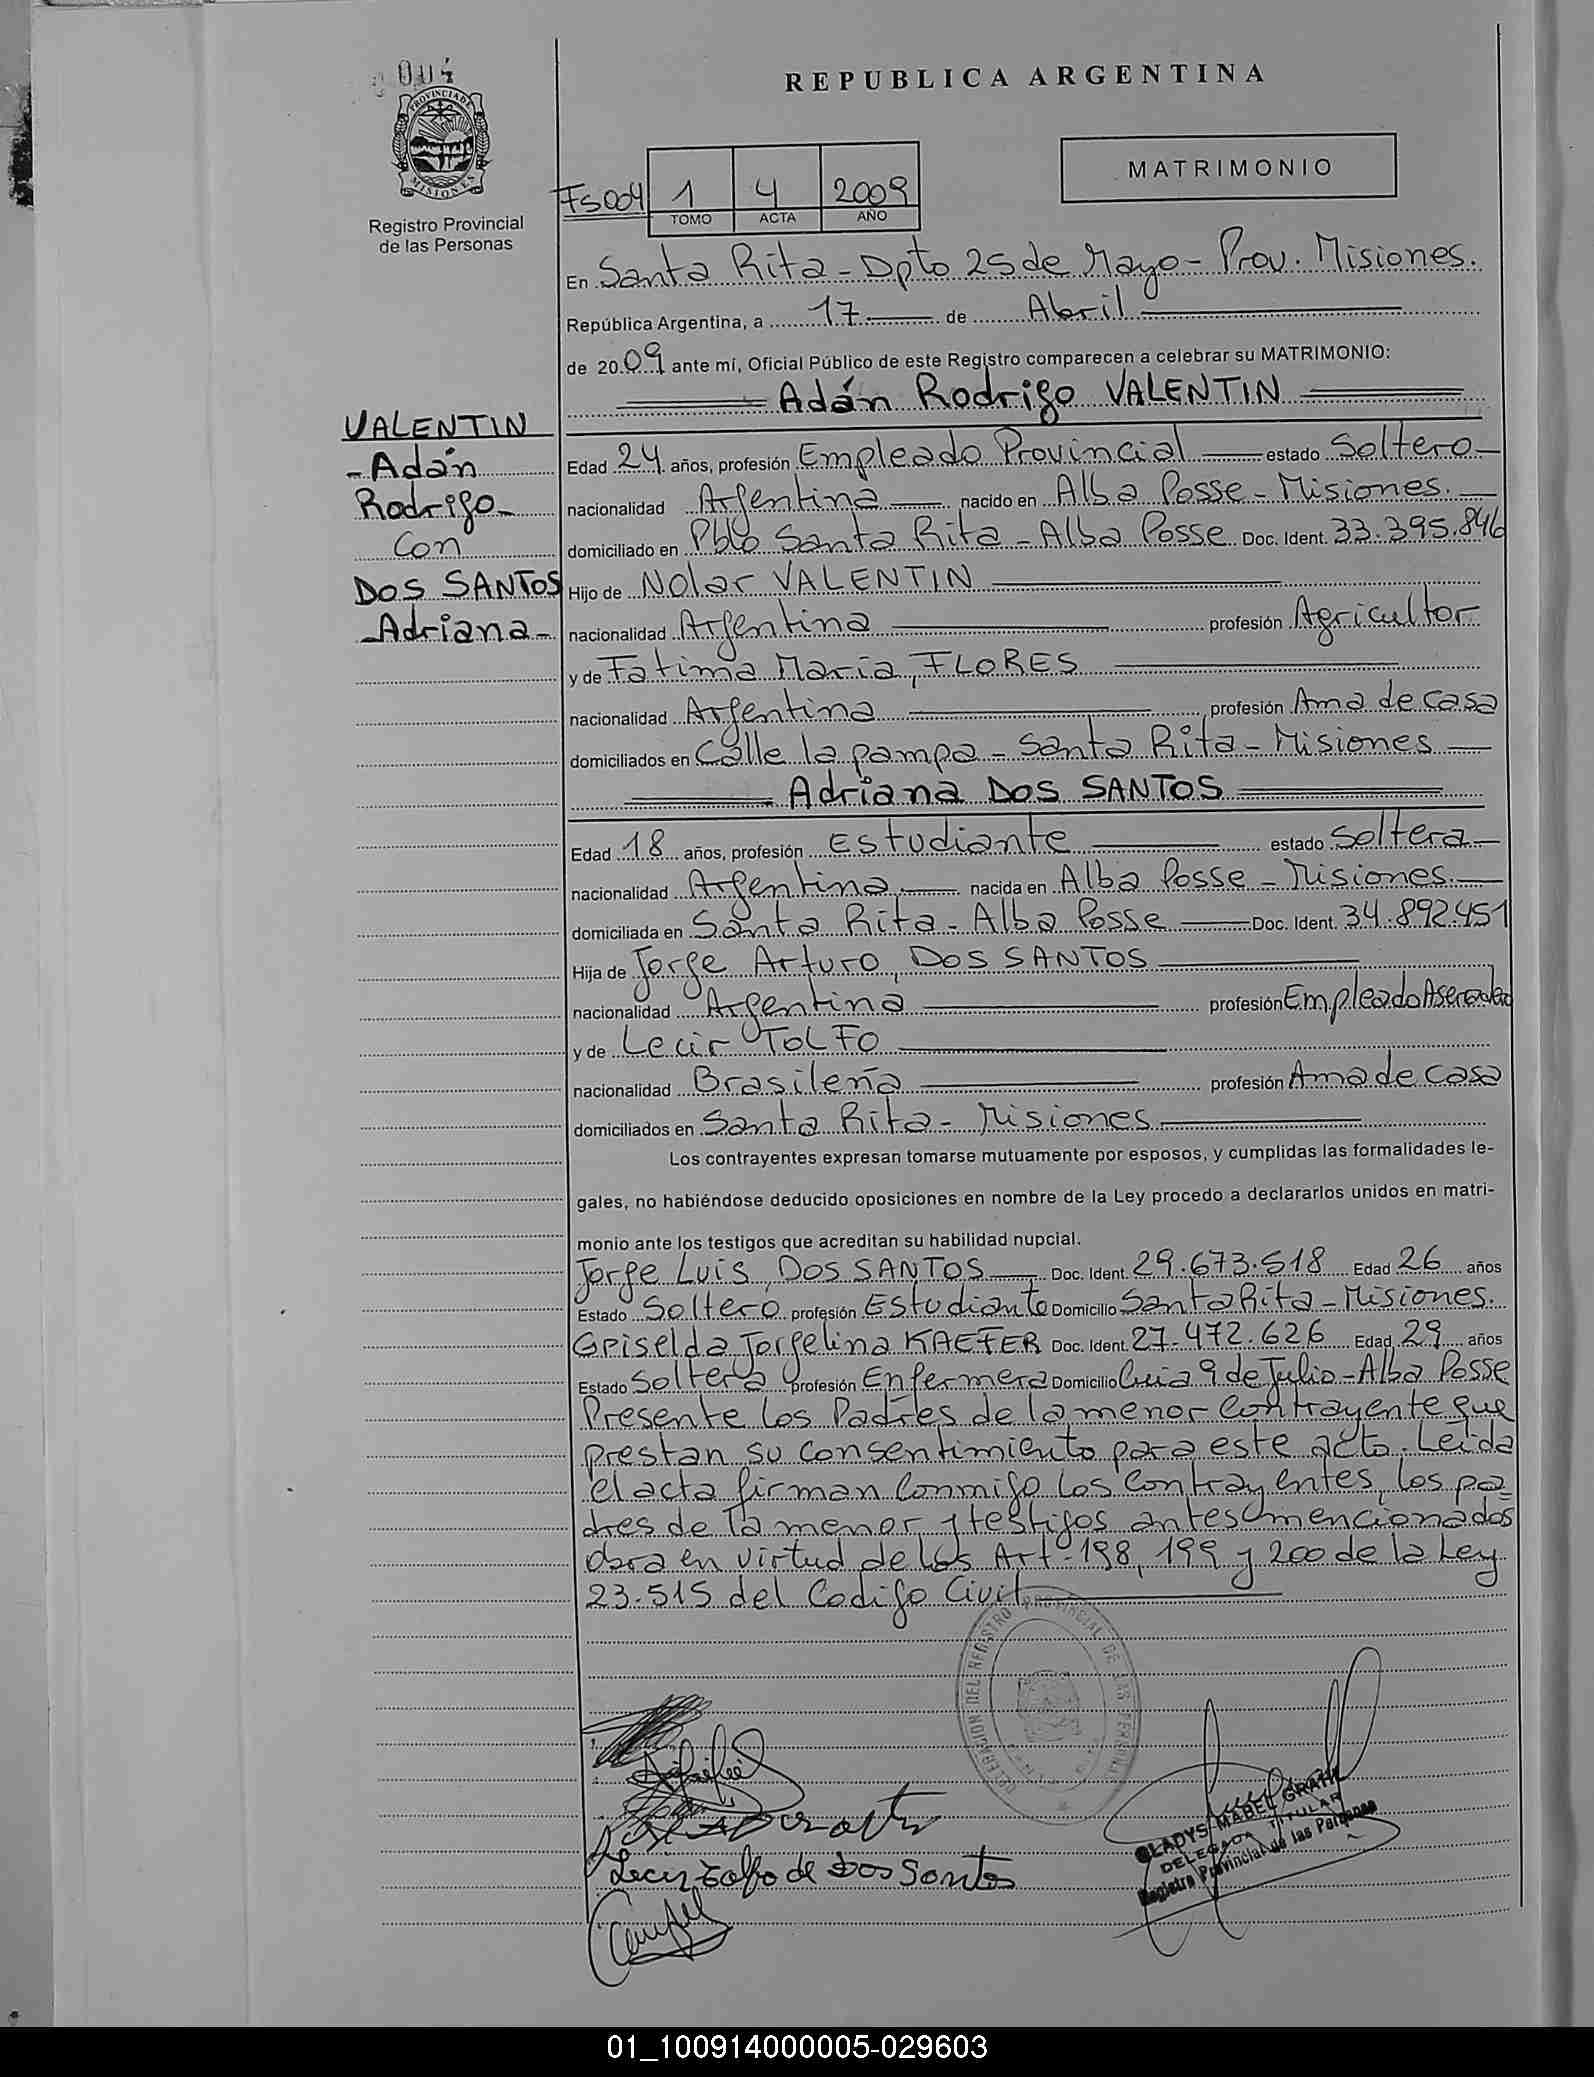 004
PROVINCIA DE
MISIONES
Registro Provincial
de las Personas
REPUBLICA ARGENTINA
MATRIMONIO
Fs004 1 4 2009
TOMO ACTA AÑO
En Santa Rita - Dpto 25 de Mayo - Prov. Misiones.
República Argentina, a 17 de Abril
de 2009 ante mí, Oficial Público de este Registro comparecen a celebrar su MATRIMONIO:
Adán Rodrigo VALENTIN
VALENTIN
- Adán
Rodrigo -
Con
DOS SANTOS
- Adriana -
Edad 24 años, profesión Empleado Provincial estado Soltero
nacionalidad Argentina nacido en Alba Posse - Misiones.
domiciliado en Pblo Santa Rita - Alba Posse Doc. Ident. 33.395.846
Hijo de Nolar VALENTIN
nacionalidad Argentina profesión Agricultor
y de Fatima Maria, FLORES
nacionalidad Argentina profesión Ama de casa
domiciliados en Calle la pampa - Santa Rita - Misiones
Adriana DOS SANTOS
Edad 18 años, profesión Estudiante estado Soltera
nacionalidad Argentina nacida en Alba Posse - Misiones.
domiciliada en Santa Rita - Alba Posse Doc. Ident. 34.892.451
Hija de Jorge Arturo, DOS SANTOS
nacionalidad Argentina profesión Empleado
y de Lecir TOLFO
nacionalidad Brasileña profesión Ama de casa
domiciliados en Santa Rita - Misiones
Los contrayentes expresan tomarse mutuamente por esposos, y cumplidas las formalidades le-
gales, no habiéndose deducido oposiciones en nombre de la Ley procedo a declararlos unidos en matri-
monio ante los testigos que acreditan su habilidad nupcial.
Jorge Luis, DOS SANTOS Doc. Ident. 29.673.518 Edad 26 años
Estado Soltero profesión Estudiante Domicilio Santa Rita - Misiones.
Griselda Jorgelina KAEFER Doc. Ident. 27.472.626 Edad 29 años
Estado Soltera profesión Enfermera Domicilio 9 de Julio - Alba Posse
Presente los Padres de la menor contrayente que
prestan su consentimiento para este acto. Leida
el acta firman conmigo los contrayentes, los pa=
dres de la menor y testigos antes mencionados
obra en virtud de los Art. 198, 199 y 200 de la Ley
23.515 del Codigo Civil
DELEGACION DEL REGISTRO PROVINCIAL DE LAS PERSONAS
Lecir Tolfo de Dos Santos
GLADYS MABEL GRAHL
DELEGADA TITULAR
Registro Provincial de las Personas
01_100914000005-029603